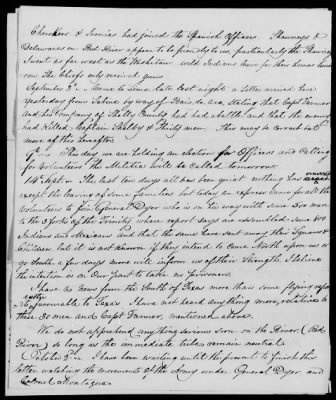 Cherokees & Ionies had joined the Spanish Officers. Shawneys &
Delawares on Red River appear to be friendly to us, particularly the Shawneys
I went as far west as the Washitaw wild Indians have for their homes
now the Chiefs only received guns
September 3d Came to some late last night a letter arrived here
Yesterday from Sabine by way of Pecis, da, era, stating that Capt Farmer
and his company of Shelby County had had a battle and that the enemy
had killed Captain Shelby & Thirty men. This may be correct but
more of this hereafter.
9th This day we are holding an election for Officers and Calling
for Volunteers the Militia will be called tomorrow
14 Sept The last few days all has been quiet nothing has occurred
except the leaving of some families but today an express came for all the
Volunteers to join General Dyer who is on his way with some 200 men
to the 3 forks of the Trinity where report says are assembled some 800
Indians and Mexicans and that the same have sent away their Squaws &
Children but it is not known if they intend to come North upon us or
go South a few days more will inform us of their Strength I believe
the intention is on Our part to take no prisoners.
I have no news from the South of Texas more than some flying reports
&c favourable to Texas I have not heard any thing more relative to
these 30 men and Capt Farmer, mentioned above.
We do not apprehend any thing serious soon on the River (Red
River) so long as the immediate tribes remain neutral
October 3d I have been waiting until the present to finish this
letter watching the movements of the Army under General Dyer and
Colonel Montague